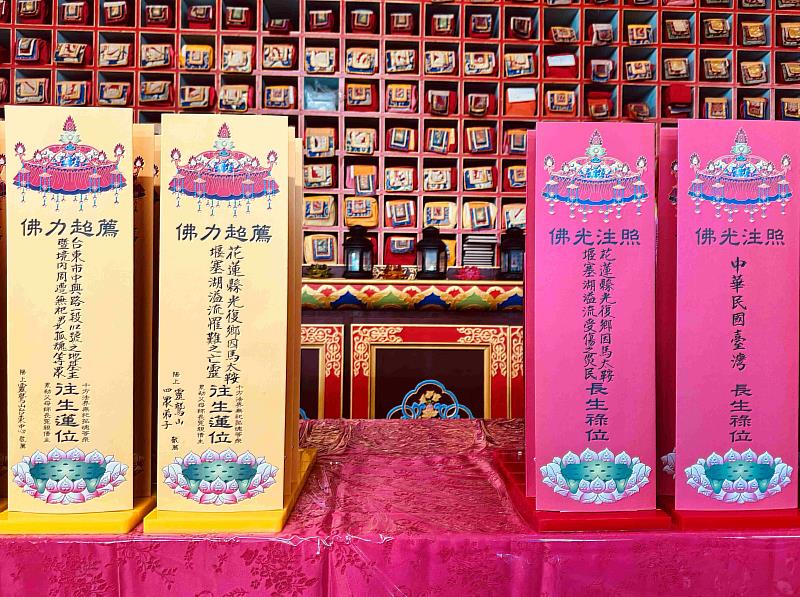 佛力超薦
台東市中興路二段112號之地基主
暨境內周遭無祀男女孤魂等眾
往生蓮位
十方法界無祀孤魂等眾
累劫父母師長冤親債主
陽上 靈鷲山台東中心 敬薦
佛力超薦
花蓮縣光復鄉因馬太鞍
堰塞湖溢流罹難之亡靈
往生蓮位
十方法界無祀孤魂等眾
累劫父母師長冤親債主
陽上 靈鷲山
四眾弟子 敬薦
佛光注照
花蓮縣光復鄉因馬太鞍
堰塞湖溢流受傷之災民
長生祿位
佛光注照
中華民國臺灣 長生祿位